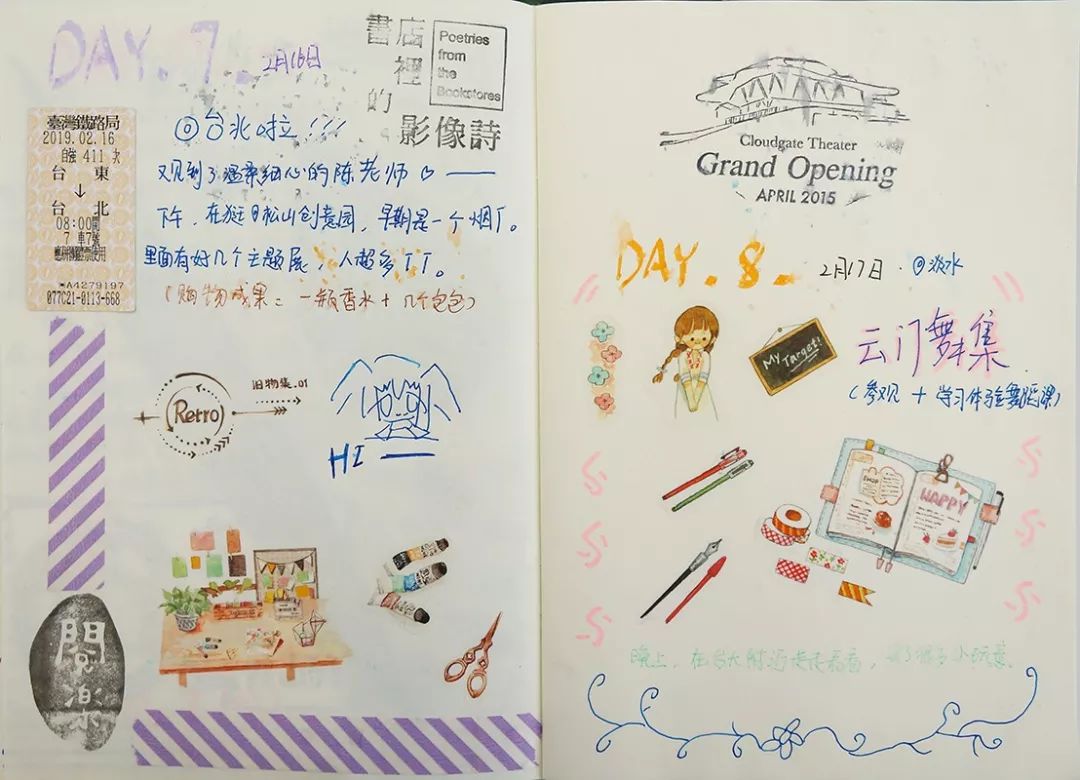 DAY. 7
2月16日
書店裡的
影像詩
Poetries
from
the
Bookstores
臺灣鐵路局
2019.02.16
自強 411 次
台 東
↓
台 北
08:00開
7 車7號
A4279197
077C21-0113-668
@台北啦!!!
又见到了温柔细心的陈老师
下午,在逛松山创意园,早期是一个烟厂。
里面有好几个主题展,人超多TT。
(购物成果:一瓶香水+几个包包)
Retro
旧物集.01
HI
閱樂
Cloudgate Theater
Grand Opening
APRIL 2015
DAY. 8.
2月17日 · @淡水
My Target!
云门舞集
(参观 + 学习体验舞蹈课)
HAPPY
晚上,在台大附近走走看看,买了很多小玩意.